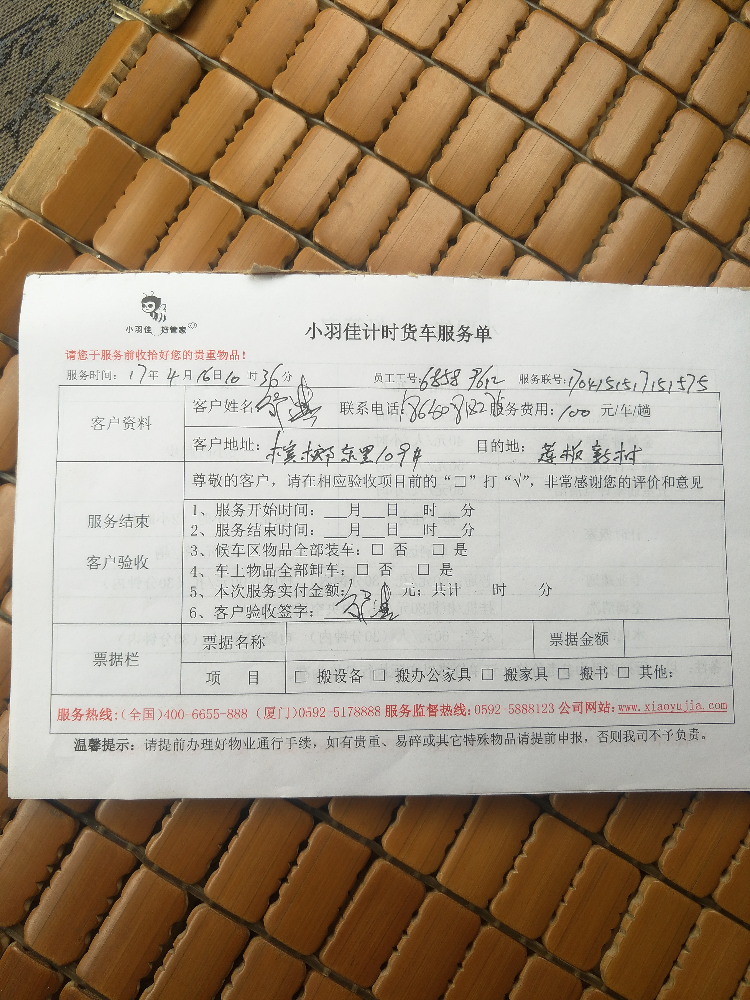 小羽佳 管家
小羽佳计时货车服务单
请您于服务前收拾好您的贵重物品！
服务时间：17年4月16日10时36分 员工工号：6858 9612 服务联号：1704151517151575
客户资料
客户姓名 联系电话： 服务费用：100 元/车/趟
客户地址：槟榔东里109# 目的地：莲板新村
尊敬的客户，请在相应验收项目前的“□”打“√”，非常感谢您的评价和意见
服务结束
客户验收
1、服务开始时间：___月___日___时___分
2、服务结束时间：___月___日___时___分
3、候车区物品全部装车：□ 否 □ 是
4、车上物品全部卸车：□ 否 □ 是
5、本次服务实付金额： 元；共计 时 分
6、客户验收签字：
票据栏
票据名称 票据金额
项 目 □ 搬设备 □ 搬办公家具 □ 搬家具 □ 搬书 □ 其他：
服务热线：(全国)400-6655-888 (厦门)0592-5178888 服务监督热线：0592-5888123 公司网站：www.xiaoyujia.com
温馨提示：请提前办理好物业通行手续，如有贵重、易碎或其它特殊物品请提前申报，否则我司不予负责。